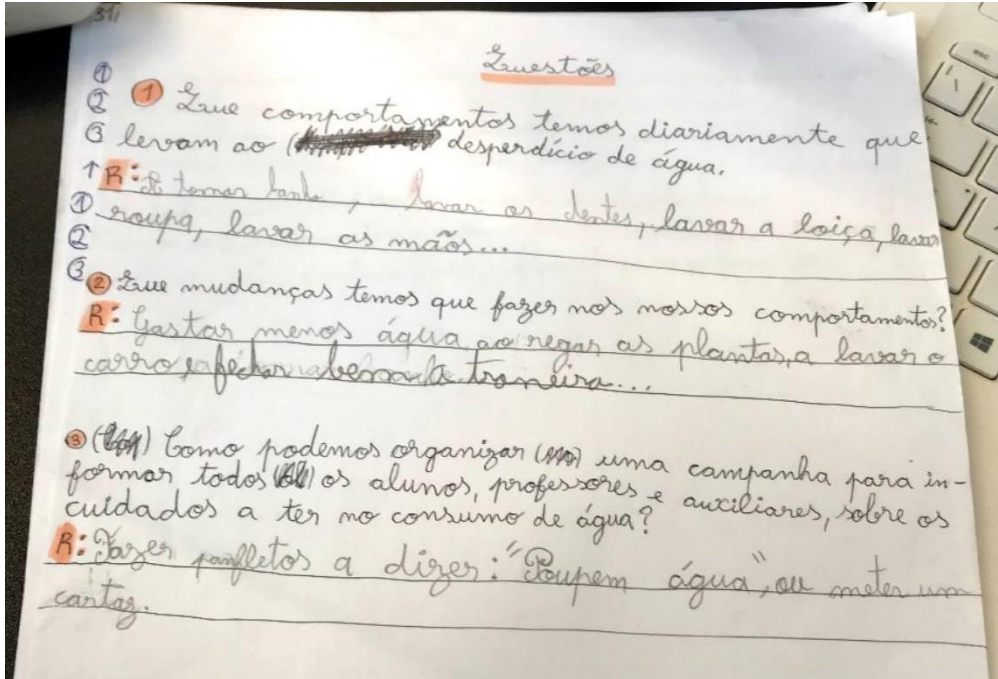 31
Questões
①
②
③
↑
①
②
③
① Que comportamentos temos diariamente que
levam ao ( desperdício de água.
R: A tomar banho, lavar os dentes, lavar a loiça, lavar
roupa, lavar as mãos...
② Que mudanças temos que fazer nos nossos comportamentos?
R: Gastar menos água ao regar as plantas, a lavar o
carro, a fechar bem a troneira...
③ () Como podemos organizar () uma campanha para in-
formar todos () os alunos, professores e auxiliares, sobre os
cuidados a ter no consumo de água?
R: Fazer panfletos a dizer: "Poupem água", ou meter um
cartaz.
esc